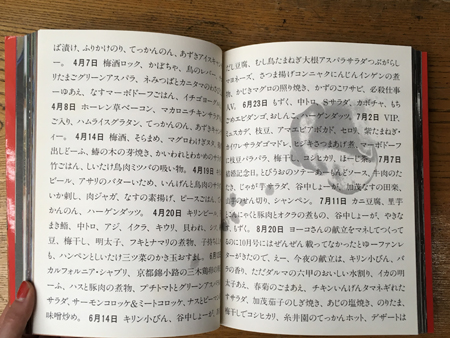 ば漬け、ふりかけのり、てっかんのん、あずきアイスキ
ー。 4月7日 梅酒ロック、かぼちゃ、鳥のレバー、
りたまごグリーンアスパラ、ネみつばとカニタマの
ーゆあえ、なすマーボドーフごはん、イチゴヨーグ
4月8日 ホーレン草ベーコン、マカロニチキンサラ
ご入り、ハムライスグラタン、てっかんのん、あずきキャ
し。 4月14日 梅酒、そらまめ、マグロわけぎヌタ、
出しどーふ、鰆の木の芽焼き、かいわれとわかめの
竹ごはん、しいたけ鳥肉ミツバの吸い物。 4月19日
ビール、アサリのバターいため、いんげんと鳥肉のサラ
いか刺し、肉ジャガ、なすの素揚げ、ピースごはん、
かんのん、ハーゲンダッツ。 4月20日 キリンビー
まき鮨、中トロ、アジ、イクラ、キウリ、貝われ、
豆、梅干し、明太子、フキとナマリの煮物、子持ち
も、ハンペンとしいたけ三ツ葉のかき玉おすまし。
カルフォルニア・シャブリ、京都錦小路の三木鶏卵
ーふ、ハスと豚肉の煮物、プチトマトとグリーンアス
サラダ、サーモンコロッケ&ミートコロッケ、ナスとピーマン
味噌炒め。 6月14日 キリン小びん、谷中しょーが、
だし豆腐、むし鳥たまねぎ大根アスパラサラダつぶがらし
マヨネーズ、さつま揚げコンニャクにんじんインゲンの煮
物、かじきマグロの照り焼き、かずのこワサビ、必殺仕事
人V。 6月23日 もずく、中トロ、Sサラダ、カボチャ、もち
ごめエビダンゴ、おしんこ 7月2日 VIP、
ミュスカデ、枝豆、アマエビアボカド、セロリ、紫たまねぎ・
ライサラダゴマドド、 キさつまあげ煮、マーボドーフ
ピ枝豆バラバラ、梅干し、コシヒカリ、ほーじ茶。 7月7日
結婚記念日、とびうおのソテー ソース、牛肉のた
たき、じゃが芋サラダ、谷中しょーが、加茂なすの田楽、
きのせん切り、シャンペン。 7月11日 カニ豆腐、里芋
んにゃくと豚肉とオクラの煮もの、谷中しょーが、やきな
ずく、丼。 8月20日 ヨーコさんの献立をマネしてつくって
るのに10月号にはぜんぜん載ってなかったとゆーファンレ
ターがきたので、えー、今夜の献立は、キリン小びん、バ
ラの香り、ただだダルマの六甲のおいしい水割り、イカの明
太子あえ、春菊のごまあえ、チキンいんげんタマネギれた
すサラダ、加茂茄子のしぎ焼き、あじの塩焼き、のりたま、
梅干しでコシヒカリ、糸井園のてっかんホット、デザートは